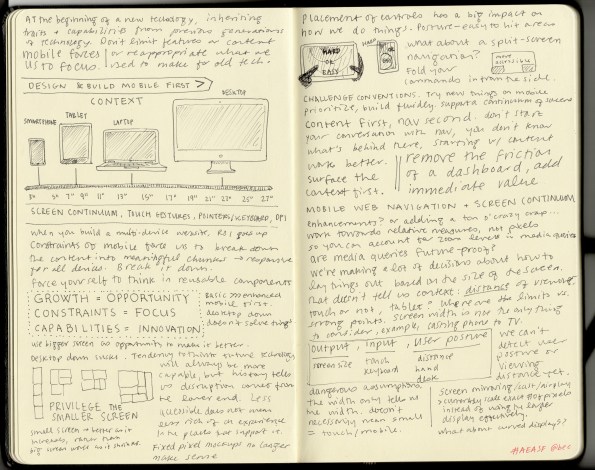 AT the beginning of a new technology, inheriting
traits + capabilities from previous generations
of technology. Don't limit features or content
mobile forces
us to focus.
or reappropriate what we
used to make for old tech.
DESIGN & BUILD MOBILE FIRST
CONTEXT
SMARTPHONE
TABLET
LAPTOP
DESKTOP
3" 5" 7" 9" 11" 13" 15" 17" 19" 21" 23" 25" 27"
SCREEN CONTINUUM, TOUCH GESTURES, POINTERS/KEYBOARD, DPI
When you build a multi-device website, ROI goes up
Constraints of mobile force us to break down
the content into meaningful chunks → responsive
for all devices. Break it down.
Force yourself to think in reusable components
GROWTH = OPPORTUNITY
CONSTRAINTS = FOCUS
CAPABILITIES = INNOVATION
BASIC >>> enhanced
mobile first.
desktop down
doesn't solve things
use bigger screen as opportunity to make it better.
Desktop down sucks. Tendency to think future technology
will always be more
capable, but history tells
us disruption comes from
the lower end. Less
accessible does not mean
less rich of an experience
in the places that support it.
Fixed pixel mockups no longer
make sense
PRIVILEGE THE
SMALLER SCREEN
small screen → better as it
increases, rather than
big screen worse as it shrinks.
Placement of controls has a big impact on
how we do things. Posture-easy to hit areas
HARD
OR
EASY
HARD
what about a split-screen
navigation?
Fold your
commands in from the sides.
more
accessible
CHALLENGE CONVENTIONS. Try new things on mobile
prioritize, build fluidly. support a continuum of screens
Content first, nav second. don't start
your conversation with nav, you don't know
what's behind here, starting w/ content
work better.
surface the
content first.
remove the friction
of a dashboard, add
immediate value
MOBILE WEB NAVIGATION + SCREEN CONTINUUM
enhancements? or adding a ton o' crazy crap...
work towards relative measures, not pixels
so you can account for zoom levels in media queries
are media queries future-proof?
we're making a lot of decisions about how to
lay things out based on the size of the screen.
that doesn't tell us context: distance of viewing,
touch or not, tablet? where are the limits vs.
strong points. Screen width is not the only thing
to consider, example, casting phone to TV.
output, input, user posture
screen size
touch
keyboard
distance
hand
desk
we can't
detect user
posture or
viewing
distance yet.
dangerous assumptions
the width only tells us
the width. doesn't
necessarily mean small
= touch/mobile.
screen mirroring/cast/airplay
instead of using the larger
display effectively.
what about curved displays?
#AEASF @brc